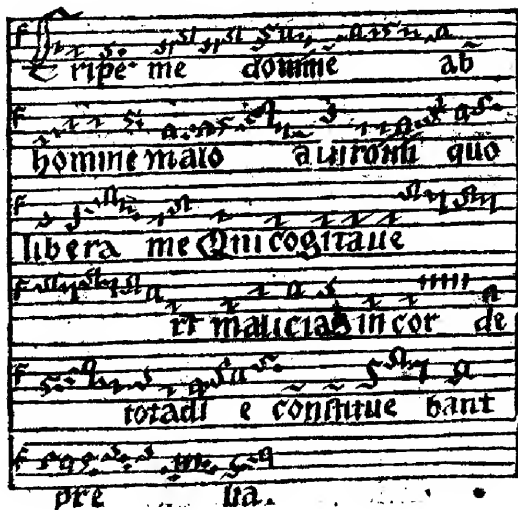 E ripe me domine ab
homine malo a uiro ini quo
libera me Qui cogitaue
rt malicias in cor de
tota di e constitue bant
pre lia.